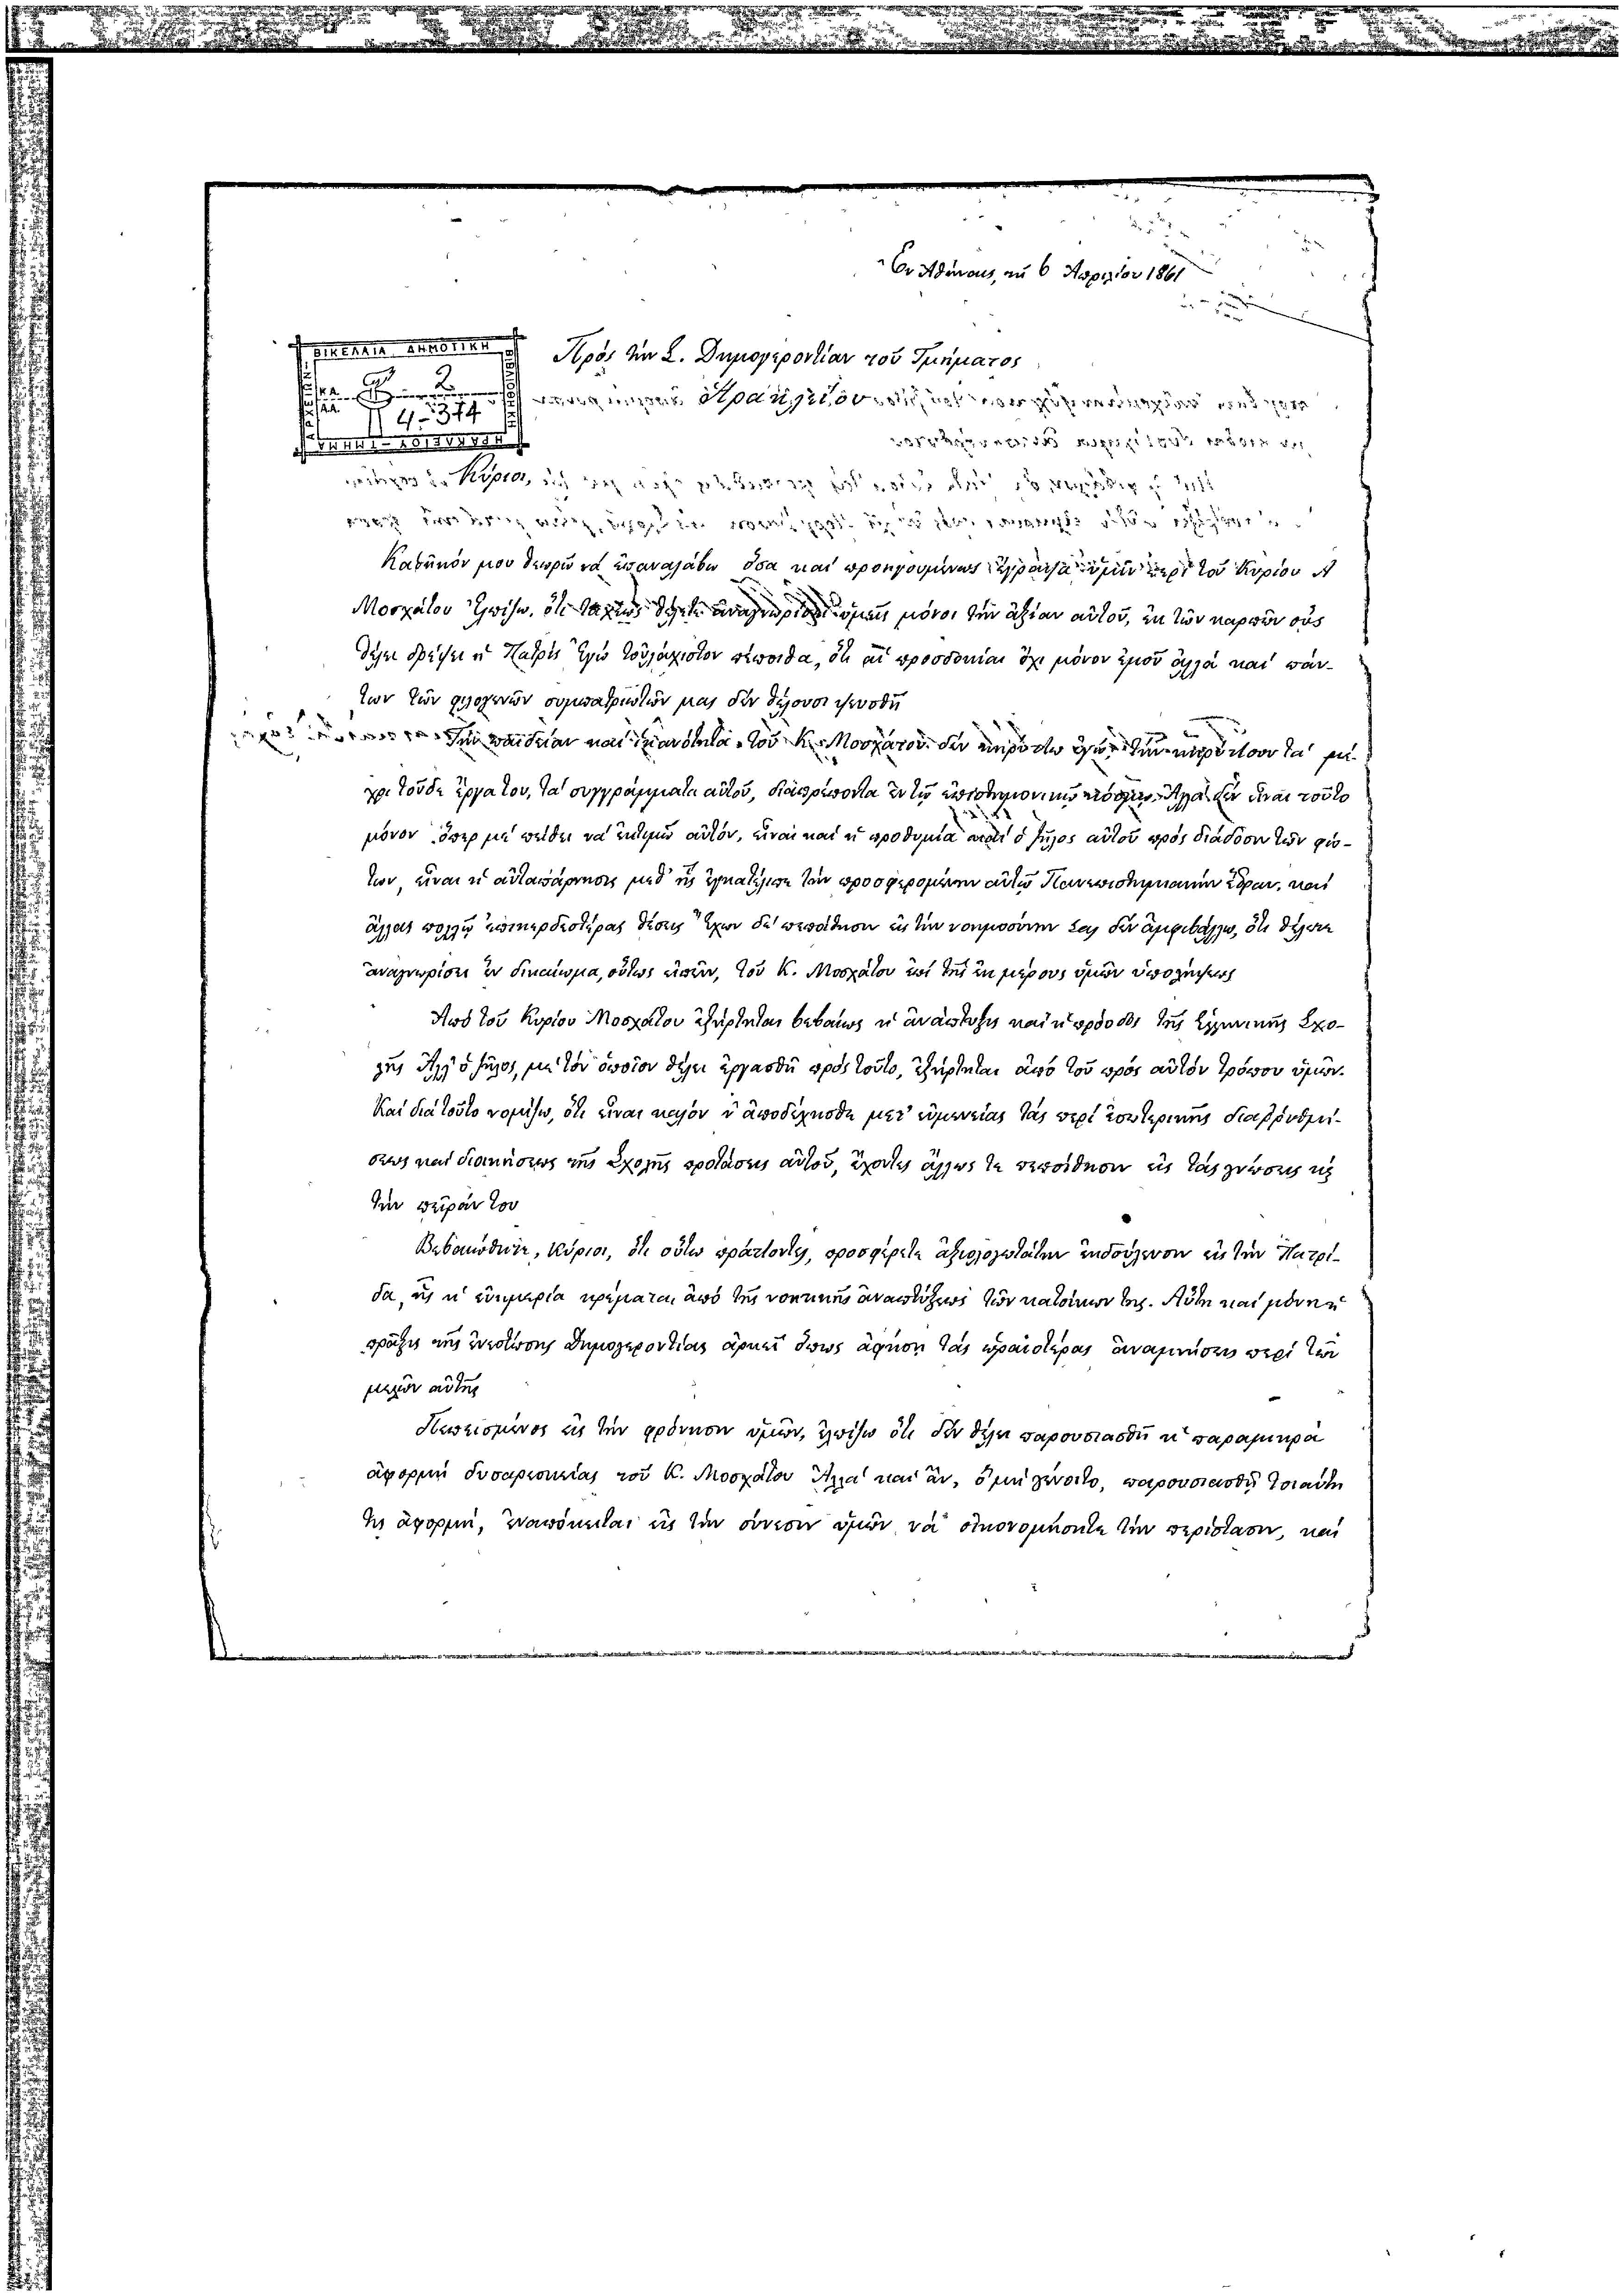 Ἐν Ἀθήναις, τῇ 6 Ἀπριλίου 1861
ΒΙΚΕΛΑΙΑ ΔΗΜΟΤΙΚΗ
2
4-374
Πρὸς τὴν Σ. Δημογεροντίαν τοῦ Τμήματος
Ἡρακλείου
Κύριοι,
Καθῆκόν μου θεωρῶ νὰ ἐπαναλάβω ὅσα καὶ προηγουμένως ἔγραψα ὑμῖν περὶ τοῦ Κυρίου Α
Μοσχάτου Ἐλπίζω, ὅτι ταχέως θέλετε ἀναγνωρίσει ὑμεῖς μόνοι τὴν ἀξίαν αὐτοῦ, ἐκ τῶν καρπῶν οὓς
θέλει δρέψει ἡ Πατρίς Ἐγὼ τοὐλάχιστον πέποιθα, ὅτι αἱ προσδοκίαι ὄχι μόνον ἐμοῦ ἀλλὰ καὶ πάν-
των τῶν φιλογενῶν συμπατριωτῶν μας δὲν θέλουσι ψευσθῆ
Τὴν παιδείαν καὶ ἱκανότητα τοῦ Κ. Μοσχάτου δὲν κηρύττω ἐγώ· τὴν κηρύττουν τὰ μέ-
χρι τοῦδε ἔργα του, τὰ συγγράμματα αὐτοῦ, διαπρέποντα ἐν τῷ ἐπιστημονικῷ κόσμῳ. Ἀλλὰ δὲν εἶναι τοῦτο
μόνον ὅπερ μὲ πείθει νὰ ἐκτιμῶ αὐτόν, εἶναι καὶ ἡ προθυμία καὶ ὁ ζῆλος αὐτοῦ πρὸς διάδοσιν τῶν φώ-
των, εἶναι ἡ αὐταπάρνησις μεθ' ἧς ἐγκατέλιπε τὴν προσφερομένην αὐτῷ Πανεπιστημιακὴν ἕδραν, καὶ
ἄλλας πολλῷ ἐπικερδεστέρας θέσεις Ἔχων δὲ πεποίθησιν εἰς τὴν νοημοσύνην Σας δὲν ἀμφιβάλλω, ὅτι θέλετε
ἀναγνωρίσει ἓν δικαίωμα, οὕτως εἰπεῖν, τοῦ Κ. Μοσχάτου ἐπὶ τῆς ἐκ μέρους ὑμῶν ὑπολήψεως
Ἀπὸ τοῦ Κυρίου Μοσχάτου ἐξήρτηται βεβαίως ἡ ἀνάπτυξις καὶ ἡ πρόοδος τῆς Ἑλληνικῆς Σχο-
λῆς Ἀλλ' ὁ ζῆλος, μὲ τὸν ὁποῖον θέλει ἐργασθῆ πρὸς τοῦτο, ἐξήρτηται ἀπὸ τοῦ πρὸς αὐτὸν τρόπου ὑμῶν.
Καὶ διὰ τοῦτο νομίζω, ὅτι εἶναι καλὸν ν' ἀποδέχησθε μετ' εὐμενείας τὰς περὶ ἐσωτερικῆς διαῤῥυθμί-
σεως καὶ διοικήσεως τῆς Σχολῆς προτάσεις αὐτοῦ, ἔχοντες ἄλλως τε πεποίθησιν εἰς τὰς γνώσεις κ
τὴν πεῖράν του
Βεβαιώθητε, Κύριοι, ὅτι οὕτω πράττοντες, προσφέρετε ἀξιολογωτάτην ἐκδούλευσιν εἰς τὴν Πατρί-
δα, ἧς ἡ εὐημερία κρέμαται ἀπὸ τῆς νοητικῆς ἀναπτύξεως τῶν κατοίκων της. Αὕτη καὶ μόνη ἡ
πρᾶξις τῆς ἐνεστώσης Δημογεροντίας ἀρκεῖ ὅπως ἀφήσῃ τὰς ὡραιοτέρας ἀναμνήσεις περὶ τῶν
μελῶν αὐτῆς
Πεπεισμένος εἰς τὴν φρόνησιν ὑμῶν, ἐλπίζω ὅτι δὲν θέλει παρουσιασθῆ ἡ παραμικρὰ
ἀφορμὴ δυσαρεσκείας τοῦ Κ. Μοσχάτου Ἀλλὰ καὶ ἄν, ὃ μὴ γένοιτο, παρουσιασθῇ τοιαύτη
τις ἀφορμή, ἐναπόκειται εἰς τὴν σύνεσιν ὑμῶν νὰ οἰκονομήσητε τὴν περίστασιν, καὶ